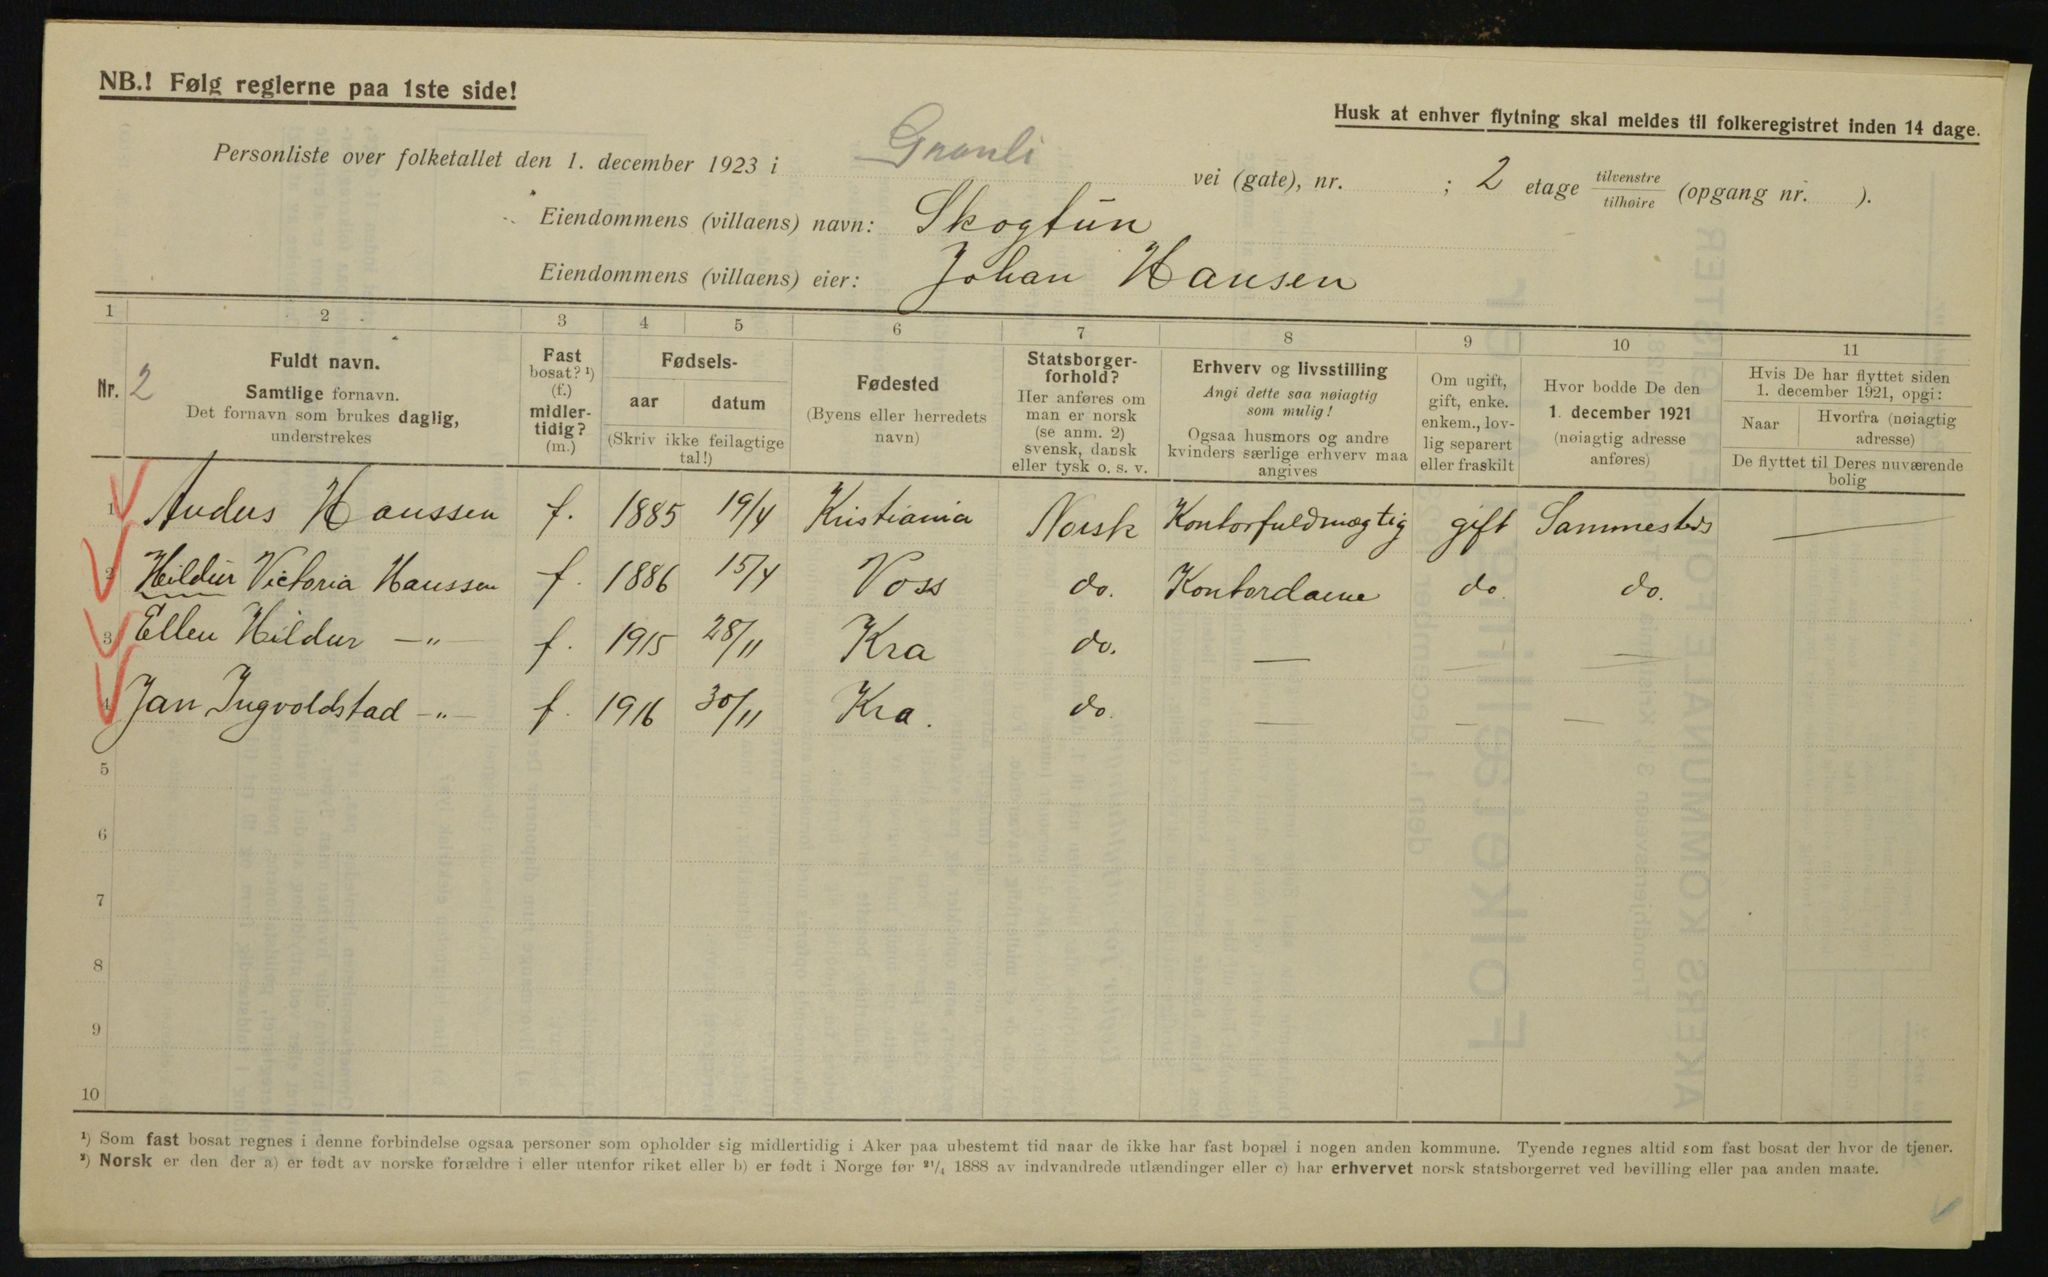 NB.! Følg reglerne paa 1ste side!
Husk at enhver flytning skal meldes til folkeregistret inden 14 dage.
Personliste over folketallet den 1. december 1923 i Granli vei (gate), nr. ; 2 etage tilvenstre tilhøire (opgang nr. ).
Eiendommens (villaens) navn: Skogtun
Eiendommens (villaens) eier: Johan Hansen
1 2 3 4 5 6 7 8 9 10 11
Nr. 2
Fuldt navn.
Samtlige fornavn.
Det fornavn som brukes daglig,
understrekes
Fast
bosat? ¹)
(f.)
midler-
tidig?
(m.)
Fødsels-
aar datum
(Skriv ikke feilagtige
tal!)
Fødested
(Byens eller herredets
navn)
Statsborger-
forhold?
Her anføres om
man er norsk
(se anm. 2)
svensk, dansk
eller tysk o. s. v.
Erhverv og livsstilling
Angi dette saa nøiagtig
som mulig!
Ogsaa husmors og andre
kvinders særlige erhverv maa
angives
Om ugift,
gift, enke.
enkem., lov-
lig separert
eller fraskilt
Hvor bodde De den
1. december 1921
(nøiagtig adresse
anføres)
Hvis De har flyttet siden
1. december 1921, opgi:
Naar Hvorfra (nøiagtig
adresse)
De flyttet til Deres nuværende
bolig
1 Anders Hanssen f. 1885 19/4 Kristiania Norsk Kontorfuldmægtig gift Sammesteds —
2 Hildur Victoria Hanssen f. 1886 15/4 Voss do. Kontordame do. do.
3 Ellen Hildur —"— f. 1915 28/11 Kra do. — — —
4 Jan Ingvoldstad —"— f. 1916 30/11 Kra. do. — — —
5
6
7
8
9
10
¹) Som fast bosat regnes i denne forbindelse ogsaa personer som opholder sig midlertidig i Aker paa ubestemt tid naar de ikke har fast bopæl i nogen anden kommune. Tyende regnes altid som fast bosat der hvor de tjener.
²) Norsk er den der a) er født av norske forældre i eller utenfor riket eller b) er født i Norge før ²¹/₄ 1888 av indvandrede utlændinger eller c) har erhvervet norsk statsborgerret ved bevilling eller paa anden maate.